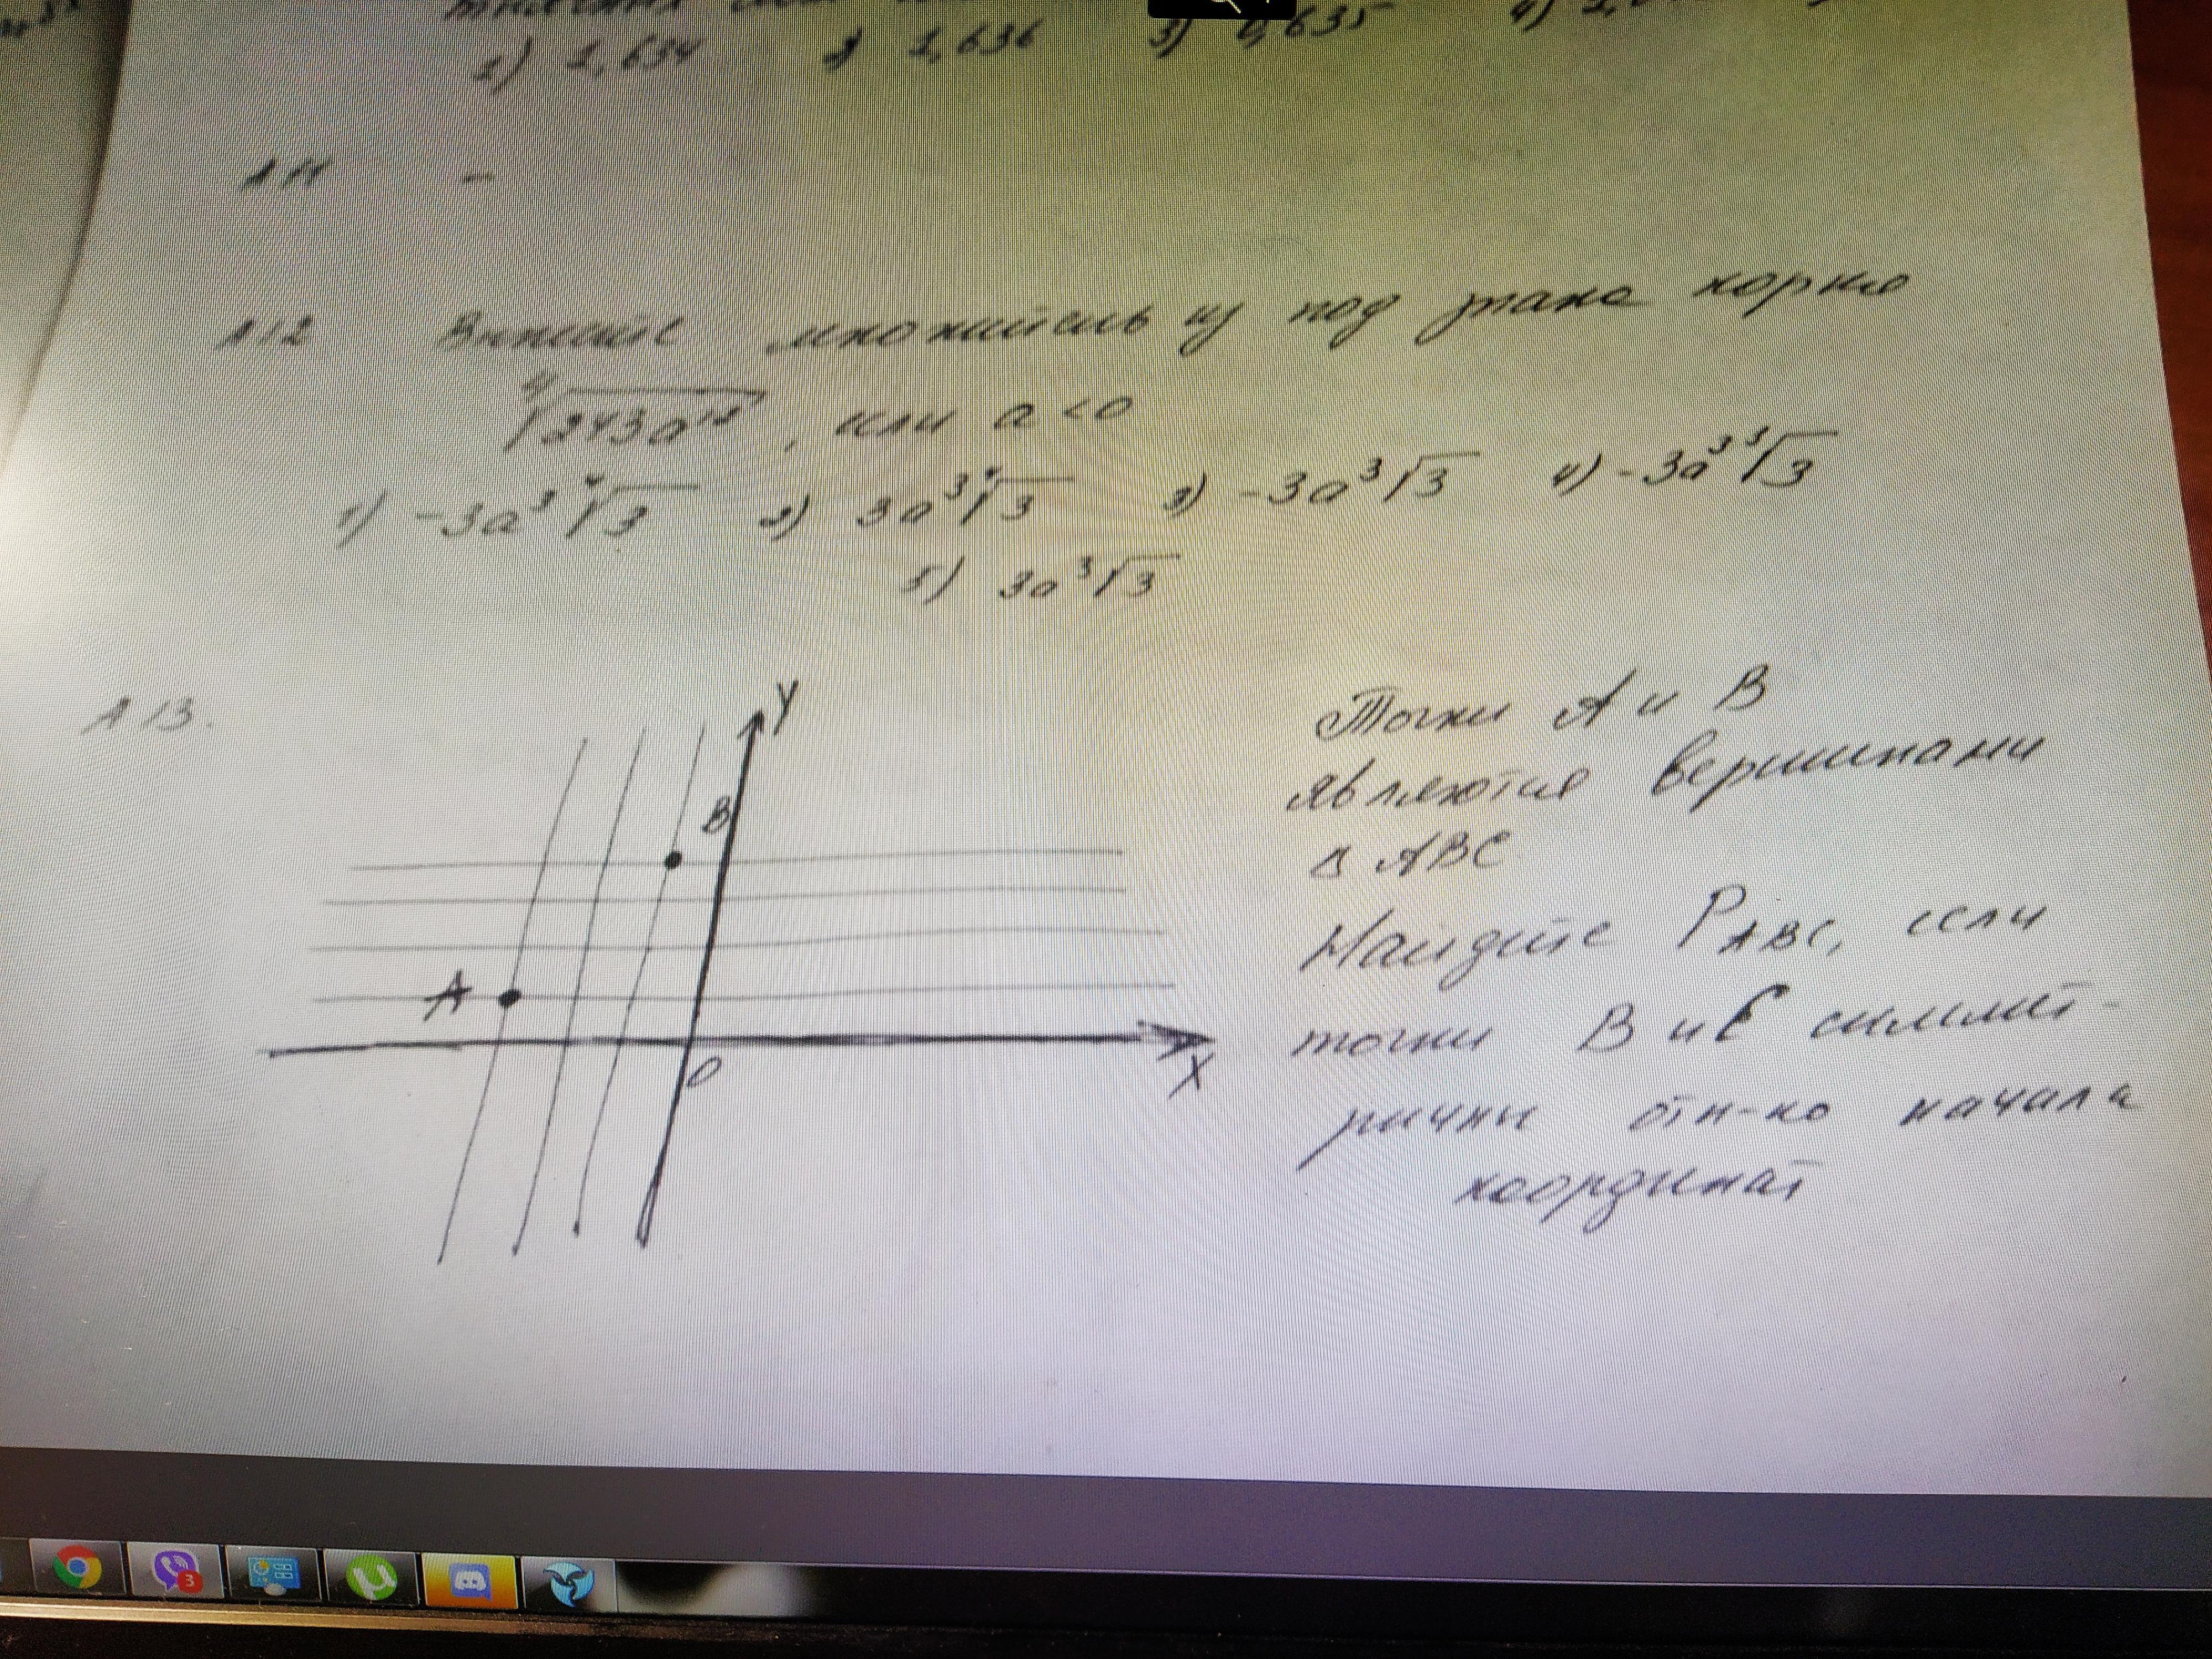 1) 1,634 2) 1,636 3) 1,635 4)
A11 –
A12 Вынесите множитель из под знака корня
⁴√243a¹², если a<0
1) -3a³ ⁴√3 2) 3a³ ⁴√3 3) -3a³√3 4) -3a³ ³√3
5) 3a³√3
A13.
Y
B
A
O
X
Точки A и B
являются вершинами
Δ ABC
Найдите P ABC, если
точки B и C симмет-
ричны отн-но начала
координат
3